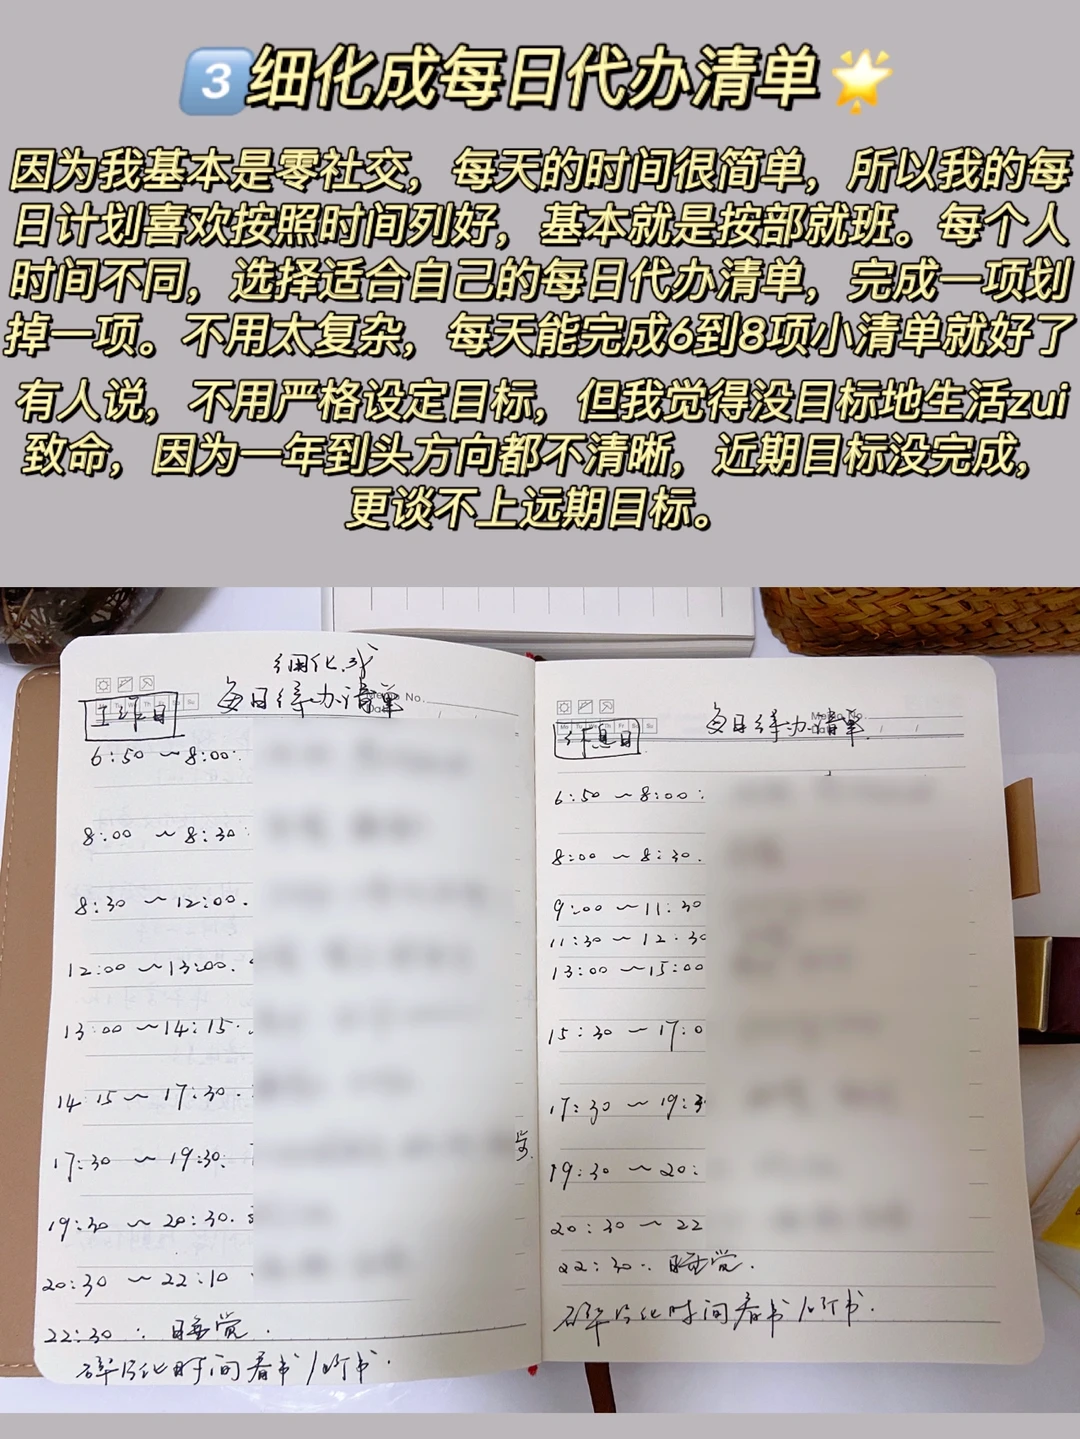 3细化成每日代办清单
因为我基本是零社交，每天的时间很简单，所以我的每
日计划喜欢按照时间列好，基本就是按部就班。每个人
时间不同，选择适合自己的每日代办清单，完成一项划
掉一项。不用太复杂，每天能完成6到8项小清单就好了
有人说，不用严格设定目标，但我觉得没目标地生活zui
致命，因为一年到头方向都不清晰，近期目标没完成，
更谈不上远期目标。
细化成
每日待办清单
工作日
6:50～8:00:
8:00～8:30:
8:30～12:00.
12:00～13:00.
13:00～14:15.
14:15～17:30.
17:30～19:30:
19:30～20:30.
20:30～22:10
22:30: 睡觉.
碎片化时间看书/听书.
每日待办清单.
休息日
6:50～8:00:
8:00～8:30.
9:00～11:30
11:30～12.30
13:00～15:00
15:30～17:0
17:30～19:3
19:30～20:
20:30～22
22:30: 睡觉.
碎片化时间看书/听书.